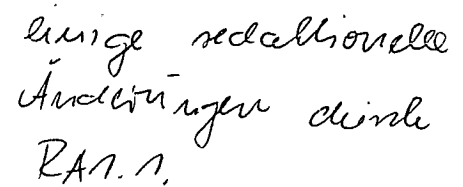 einige redaktionelle
Änderungen durch
RA1.1.